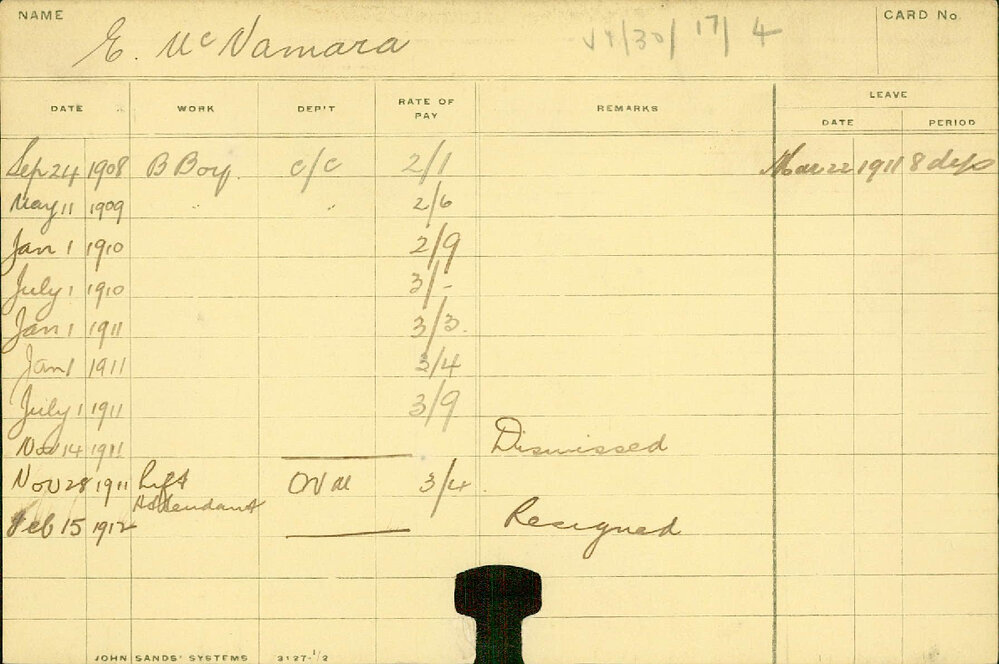 NAME
E. McNamara
/30/17/4
CARD No.
DATE WORK DEP'T RATE OF PAY REMARKS LEAVE
DATE PERIOD
Sep 24 1908 B Boy. c/c 2/1 Mar 22 1911 8 days
May 11 1909 2/6
Jan 1 1910 2/9
July 1 1910 3/-
Jan 1 1911 3/3.
Jan 1 1911 3/4
July 1 1911 3/9
Nov 14 1911 Dismissed
Nov 28 1911 Lift Attendant 3/4
Feb 15 1912 Resigned
JOHN SANDS' SYSTEMS 3127-1/2